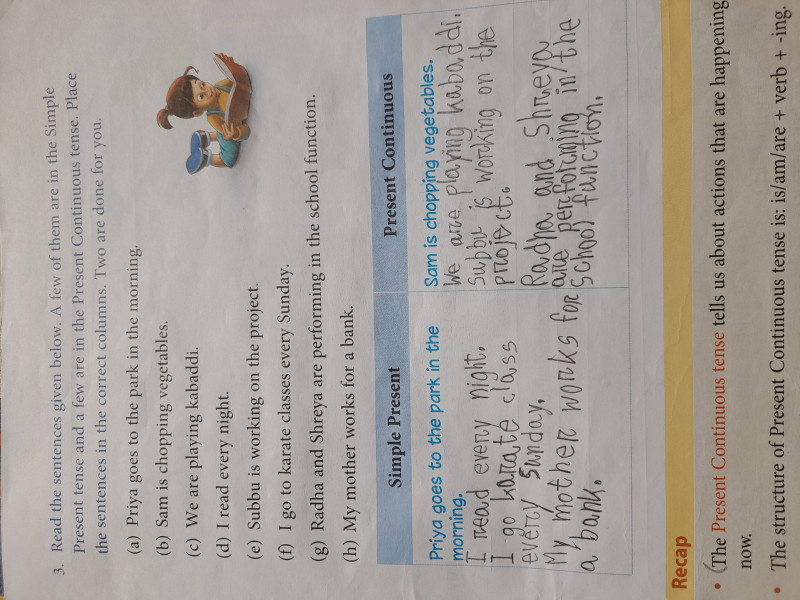 3. Read the sentences given below. A few of them are in the Simple
Present tense and a few are in the Present Continuous tense. Place
the sentences in the correct columns. Two are done for you.
(a) Priya goes to the park in the morning.
(b) Sam is chopping vegetables.
(c) We are playing kabaddi.
(d) I read every night.
(e) Subbu is working on the project.
(f) I go to karate classes every Sunday.
(g) Radha and Shreya are performing in the school function.
(h) My mother works for a bank.
Simple Present
Priya goes to the park in the
morning.
I read every night.
I go karate class
every Sunday.
My mother works for
a bank.
Present Continuous
Sam is chopping vegetables.
We are playing kabaddi.
Subbu is working on the
project.
Radha and Shreya
are performing in the
school function.
Recap
• (The Present Continuous tense tells us about actions that are happening
now.
• The structure of Present Continuous tense is: is/am/are + verb + -ing.